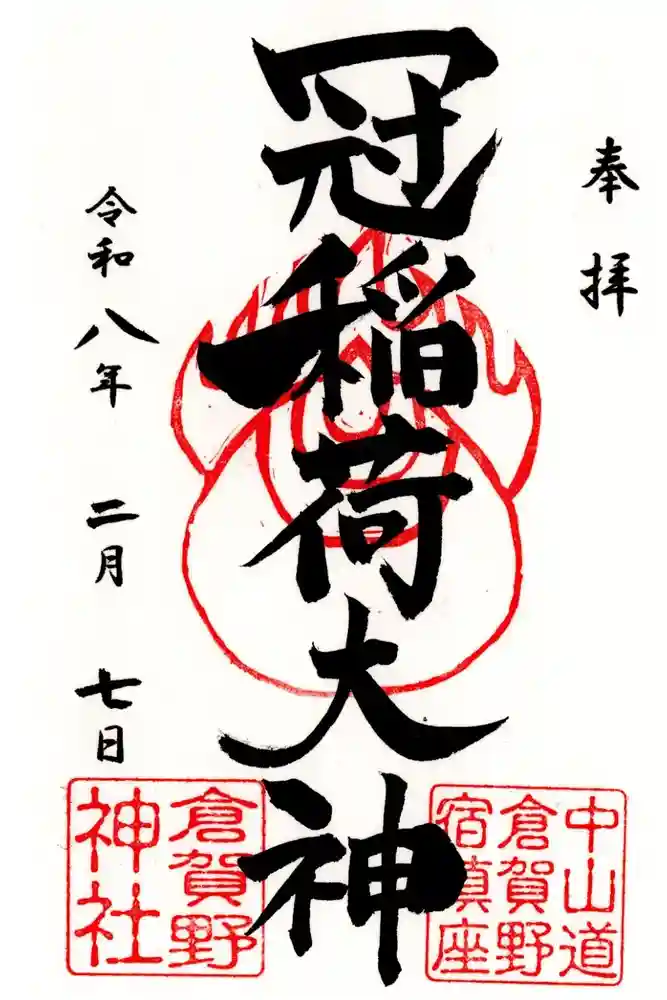 奉拝
冠稲荷大神
令和八年 二月 七日
中山道
倉賀野
宿鎮座
倉賀野
神社